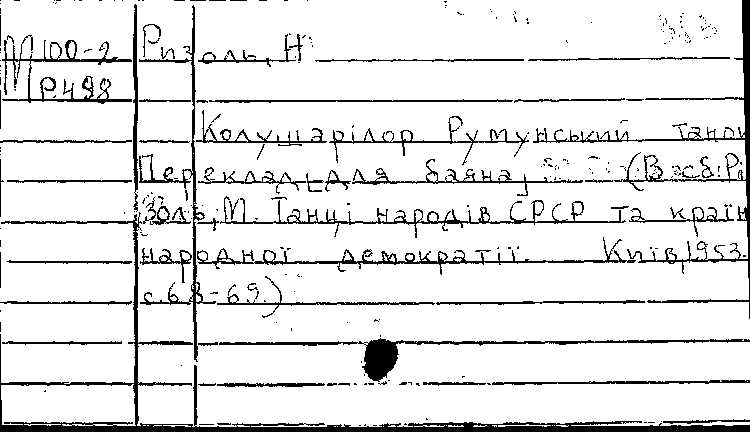 М 100-2 Ризоль, Н
Р498
Колушарілор Румунський танок
Переклад для баяна, (В зб: Ри
золь, М. Танці народів СРСР та країн
народної демократії. Київ, 1953.
с. 68-69.)